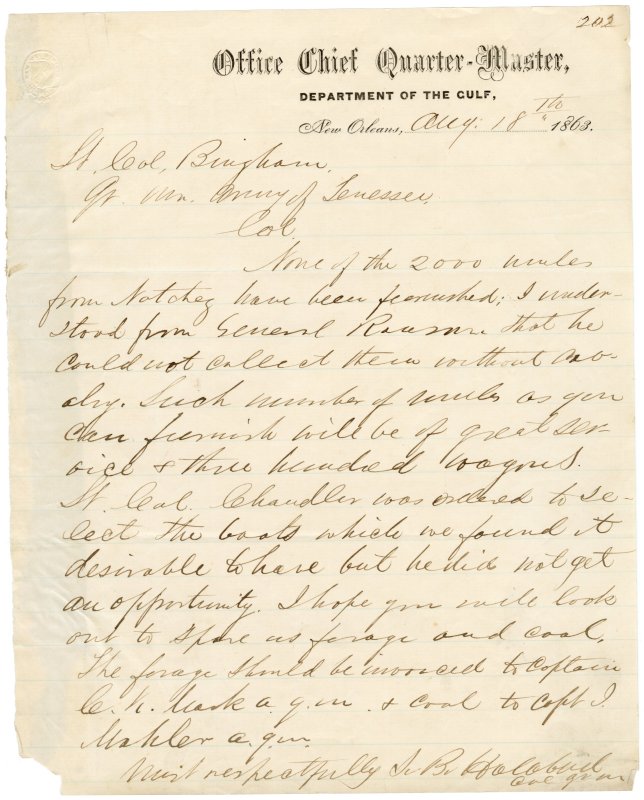 202
Office Chief Quarter-Master,
DEPARTMENT OF THE GULF,
New Orleans, Aug: 18th 1863.
Lt. Col, Bingham,
Qr. Mr. Army of Tenessee,
Col.
None of the 2000 mules
from Natchez have been furnished; I under-
stood from General Ransom that he
could not collect them without cav-
alry. Such number of mules as you
can furnish will be of great ser-
vice & three hundred wagons.
Lt. Col. Chandler was ordered to se-
lect the boats which we found it
desirable to have but he did not get
an opportunity. I hope you will look
out to spare us forage and coal.
The forage should be invoiced to Captain
a. q. m. & coal to Capt J.
Mahler a. q. m.
Most respectfully S. B. Holabird
Col. q m